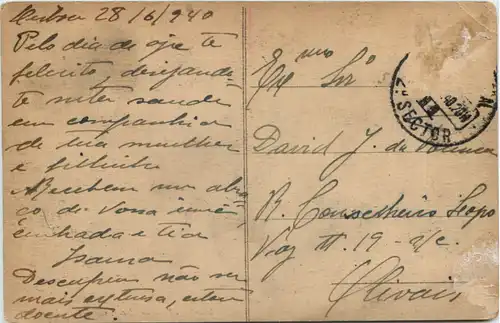 Lisboa 28/6/940
Pelo dia de oje te
felicito, desejando
te muita saude
em companhia
de tua mulher
e filhinho
Recebem um abra
ço de vossa
cunhada e tia
Isaura
Desculpem não ser
mais extensa, estou
doente.
Exmo Snr
David J. da
R. Conselheiro Lopo
Vaz 19 - a/c.
Olivais
2º SECTOR